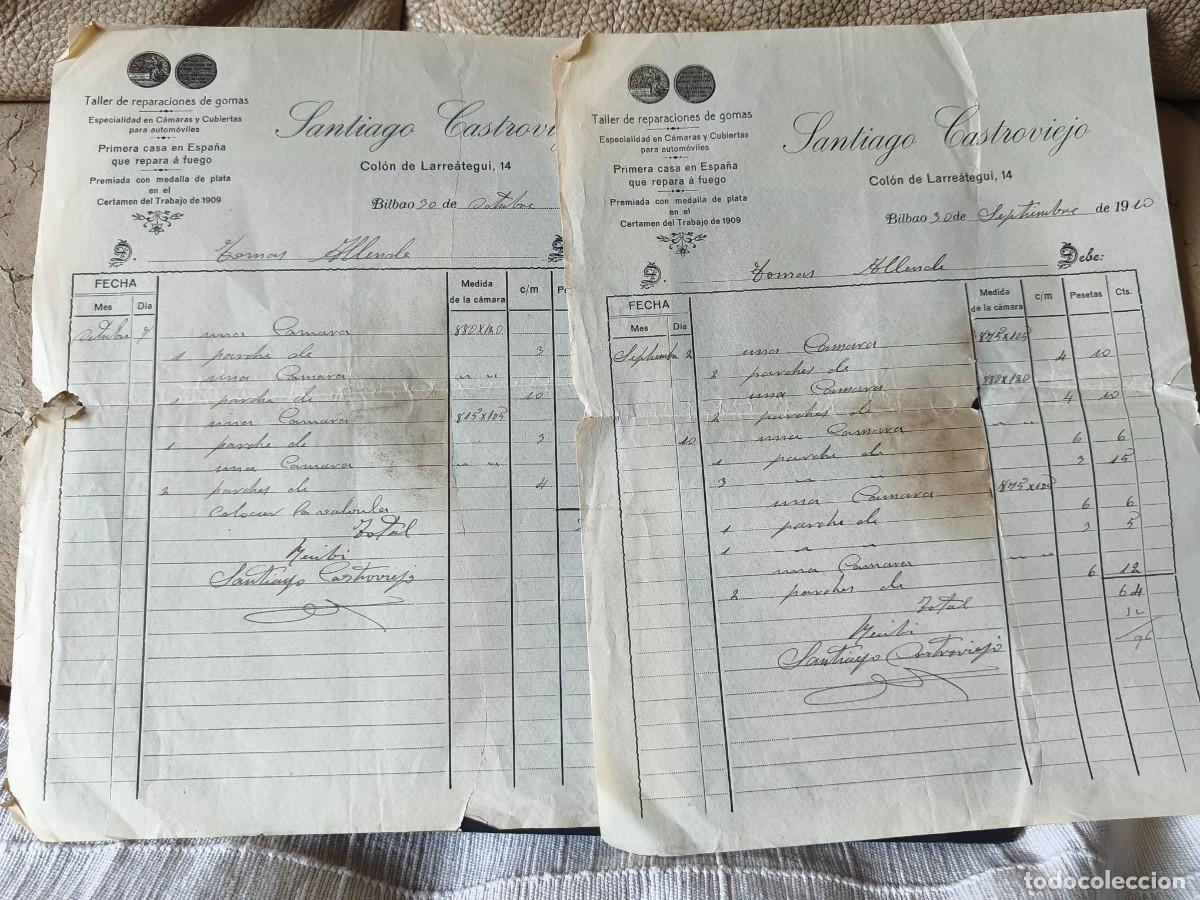 Taller de reparaciones de gomas
Especialidad en Cámaras y Cubiertas
para automóviles
Primera casa en España
que repara á fuego
Premiada con medalla de plata
en el
Certamen del Trabajo de 1909
Santiago Castroviej
Colón de Larreátegui, 14
Bilbao 30 de Octubre
D. Tomas Allende
FECHA
Mes Dia
Medida
de la cámara
c/m
Octubre 7 una Camara 880x120
1 parche de 3
una Camara " "
1 parche de 10
una Camara 875x105
1 parche de 3
una Camara " "
2 parches de 4
Colocar la valvula
Total
Recibi
Santiago Castroviejo
Taller de reparaciones de gomas
Especialidad en Cámaras y Cubiertas
para automóviles
Primera casa en España
que repara á fuego
Premiada con medalla de plata
en el
Certamen del Trabajo de 1909
Santiago Castroviejo
Colón de Larreátegui, 14
Bilbao 30 de Septiembre de 1910
D. Tomas Allende Debe:
FECHA
Mes Dia
Medida
de la cámara
c/m Pesetas Cts.
Septiembre 2 una Camara 875x105
2 parches de 4 10
una Camara 880x120
2 parches de 4 10
10 una Camara " "
1 parche de 6 6
3 " " 3 15
una Camara 875x105
1 parche de 6 6
1 " " 3 5
una Camara " "
2 parches de 6 12
Total 64
Recibi
Santiago Castroviejo
todocoleccion